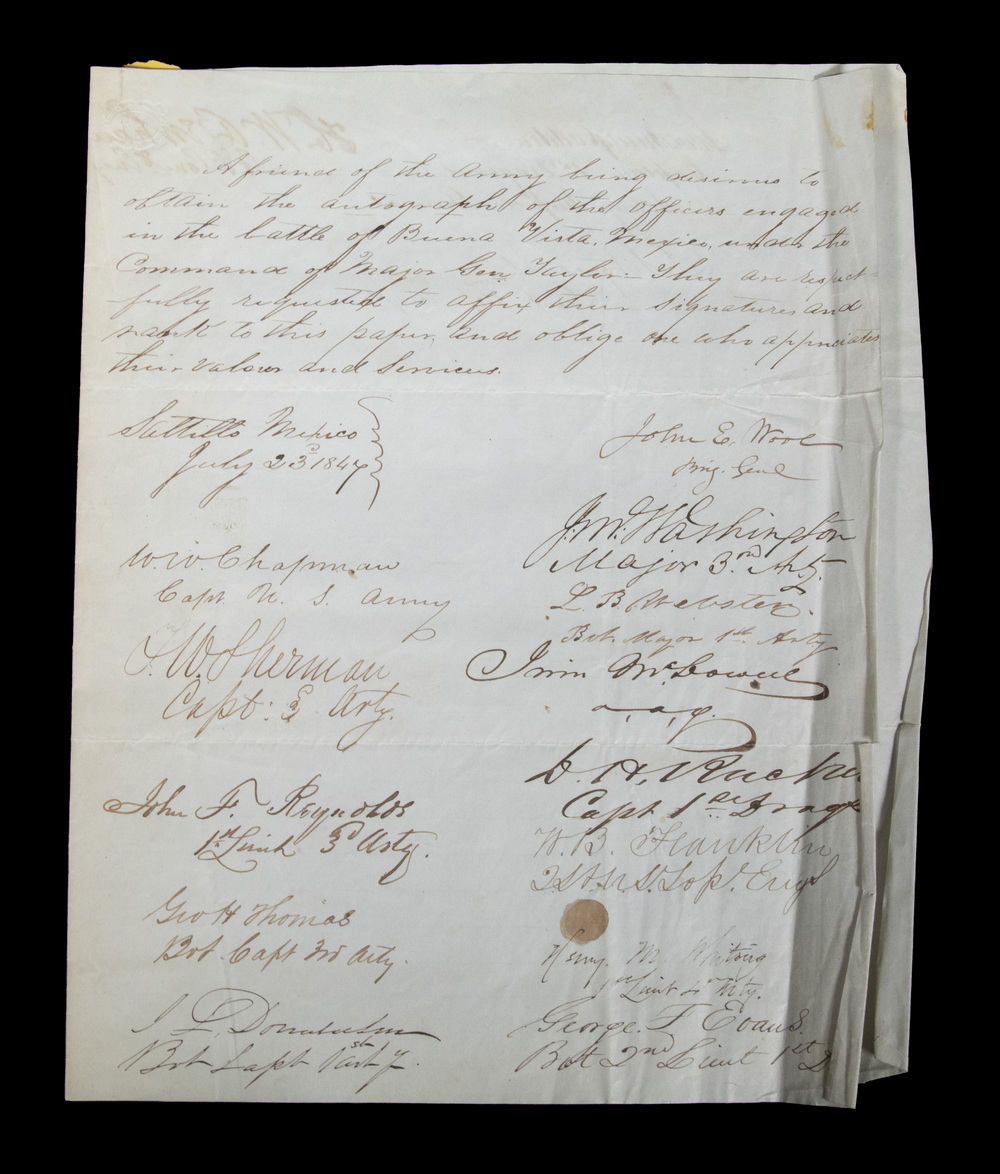 A friend of the Army being desirous to
obtain the autograph of the officers engaged
in the battle of Buena Vista. Mexico, under the
Command of Major Gen. Taylor— They are respect-
fully requested to affix their signatures and
rank to this paper, and oblige one who appreciates
their valour and services.
Saltillo Mexico
July 23d 1847
John E. Wool
Brig. Genl
J. M. Washington
Major 3rd Arty.
W. W. Chapman
Capt. U. S. Army
L. B. Webster.
Bvt. Major 1st Arty
T. W. Sherman
Capt: 3 Arty.
Irvin McDowell
a, a, g.
D. H. Rucker
Capt 1st Drag
John F. Reynolds
1st Lieut 3d Arty.
W. B. Franklin
2 Lt. U. S. Topl. Engs
Geo H Thomas
Bvt. Capt 3rd Arty.
Henry. M. Whiting
1st Lieut 4th Arty.
Donaldson
Bvt Capt 1st Art'y
George. F. Evans.
Bvt 2nd Lieut 1st D